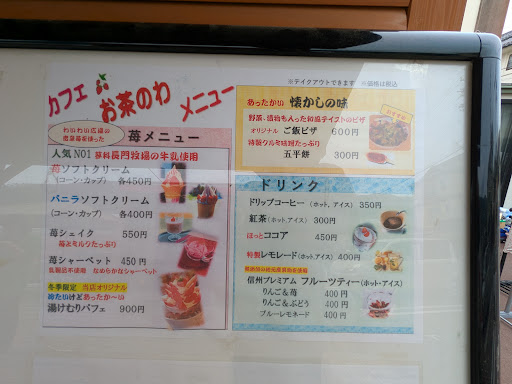 カフェ お茶のわ メニュー
※テイクアウトできます ※価格は税込
わいわい広場の
苺メニュー
人気NO1 蓼科長門牧場の牛乳使用
苺ソフトクリーム
(コーン・カップ) 各450円
バニラソフトクリーム
(コーン・カップ) 各400円
苺シェイク 550円
苺とミルクたっぷり
苺シャーベット 450円
乳製品不使用 なめらかシャーベット
冬季限定 当店オリジナル
冷たいけどあったか〜い
湯けむりパフェ 900円
あったかい 懐かしの味
野菜、漬物も入った和風テイストのピザ
オリジナル ご飯ピザ 600円
特製クルミ味噌たっぷり
五平餅 300円
ドリンク
ドリップコーヒー (ホット、アイス) 350円
紅茶(ホット、アイス) 300円
ほっとココア 450円
特製レモレード(ホット、アイス) 400円
信州プレミアム フルーツティー(ホット・アイス)
りんご&苺 400円
りんご&ぶどう 400円
ブルーレモネード 400円